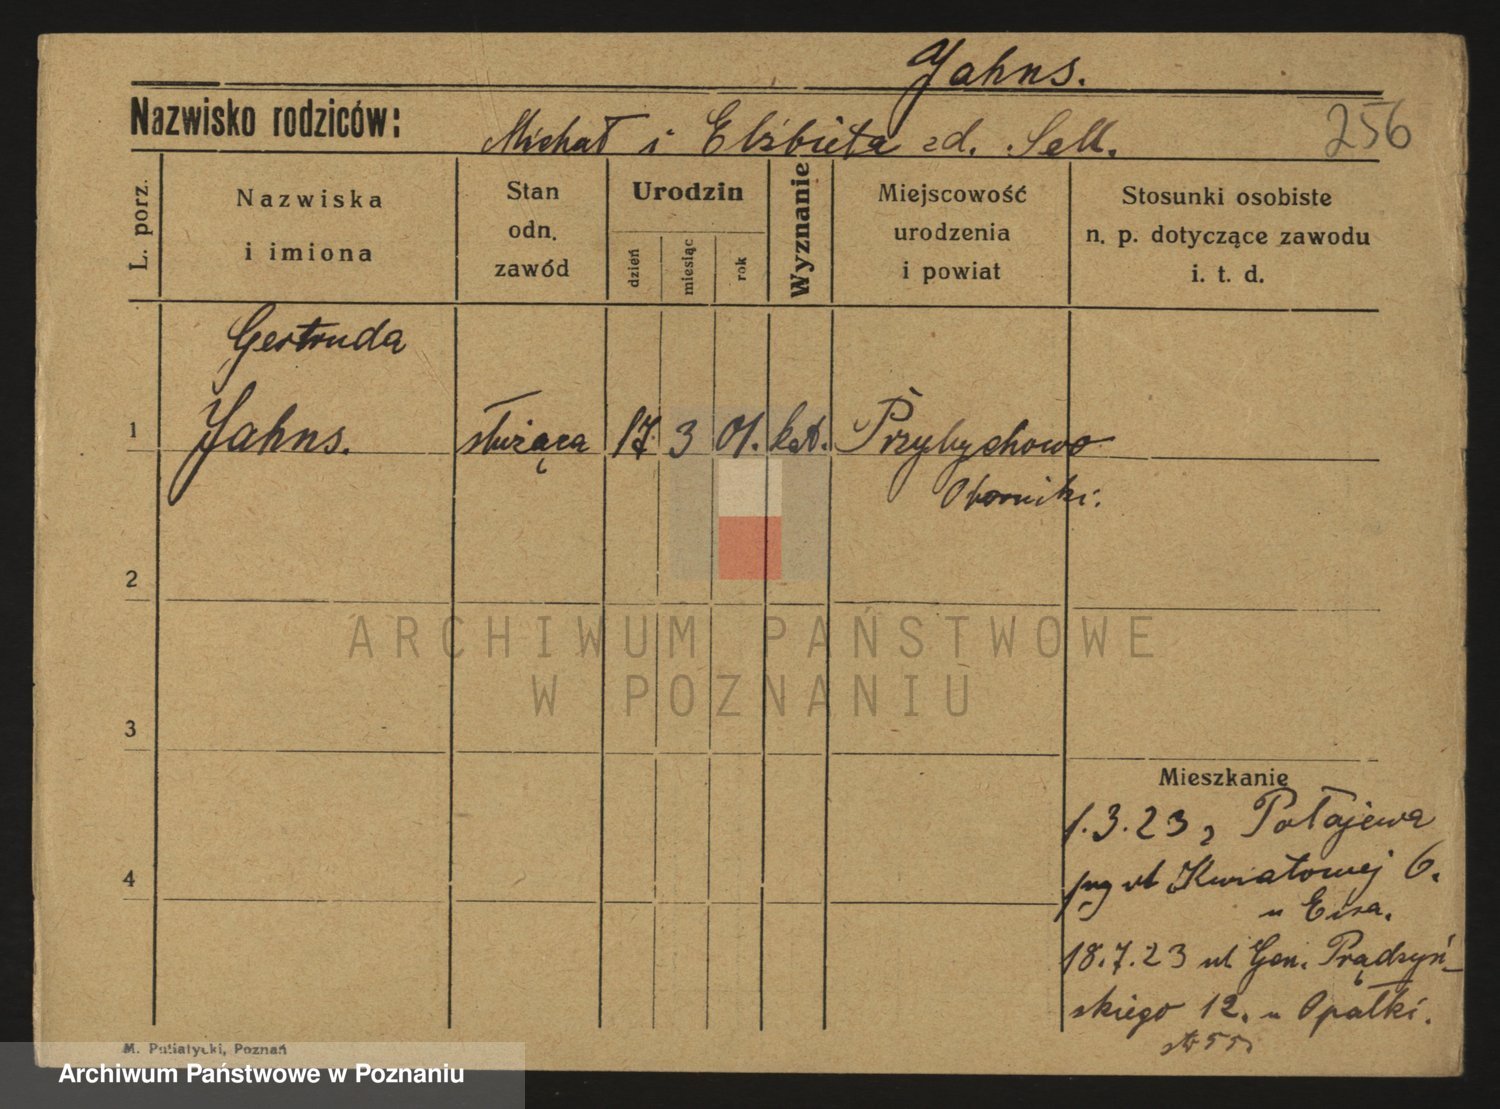 Jahns.
Nazwisko rodziców:
Michał i Elżbieta zd. Sell.
256
L. porz.
Nazwiska
i imiona
Stan
odn.
zawód
Urodzin
dzień
miesiąc
rok
Wyznanie
Miejscowość
urodzenia
i powiat
Stosunki osobiste
n. p. dotyczące zawodu
i. t. d.
Gertruda
1 Jahns. służąca 17. 3 01. kat. Przybychowo
Oborniki.
2
ARCHIWUM PAŃSTWOWE
W POZNANIU
3
Mieszkanie
1.3.23 z Połajewa
ul Kwiatowej 6.
u Eisa.
4
18.7.23 ul Gen. Prądzyń-
skiego 12. u Opałki.
M. Putiatycki, Poznań
Archiwum Państwowe w Poznaniu